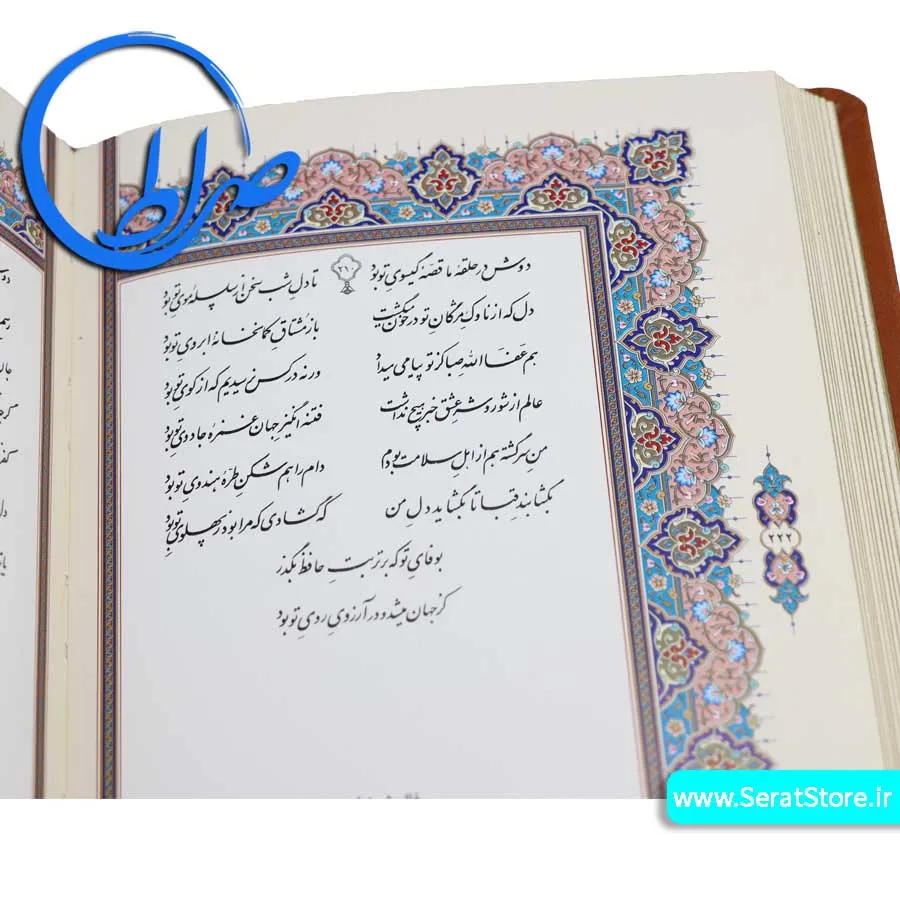 صراط
دوش در حلقهٔ ما قصهٔ گیسوی تو بود ۲۱۰ تا دلِ شب سخن از سلسلهٔ موی تو بود
دل که از ناوکِ مژگان تو در خون می‌گشت باز مشتاقِ کمانخانهٔ ابروی تو بود
هم عَفَا الله صبا کز تو پیامی میداد ورنه در کس نرسیدیم که از کوی تو بود
عالم از شور و شرِ عشق خبر هیچ نداشت فتنه‌انگیزِ جهان غمزهٔ جادوی تو بود
منِ سرگشته هم از اهلِ سلامت بودم دامِ راهم شکنِ طرّهٔ هندوی تو بود
بگشا بندِ قبا تا بگشاید دلِ من که گشادی که مرا بود ز پهلوی تو بود
بوفایِ تو که بر تربتِ حافظ بگذر
کز جهان میشد و در آرزوی روی تو بود
۲۲۲
www.SeratStore.ir